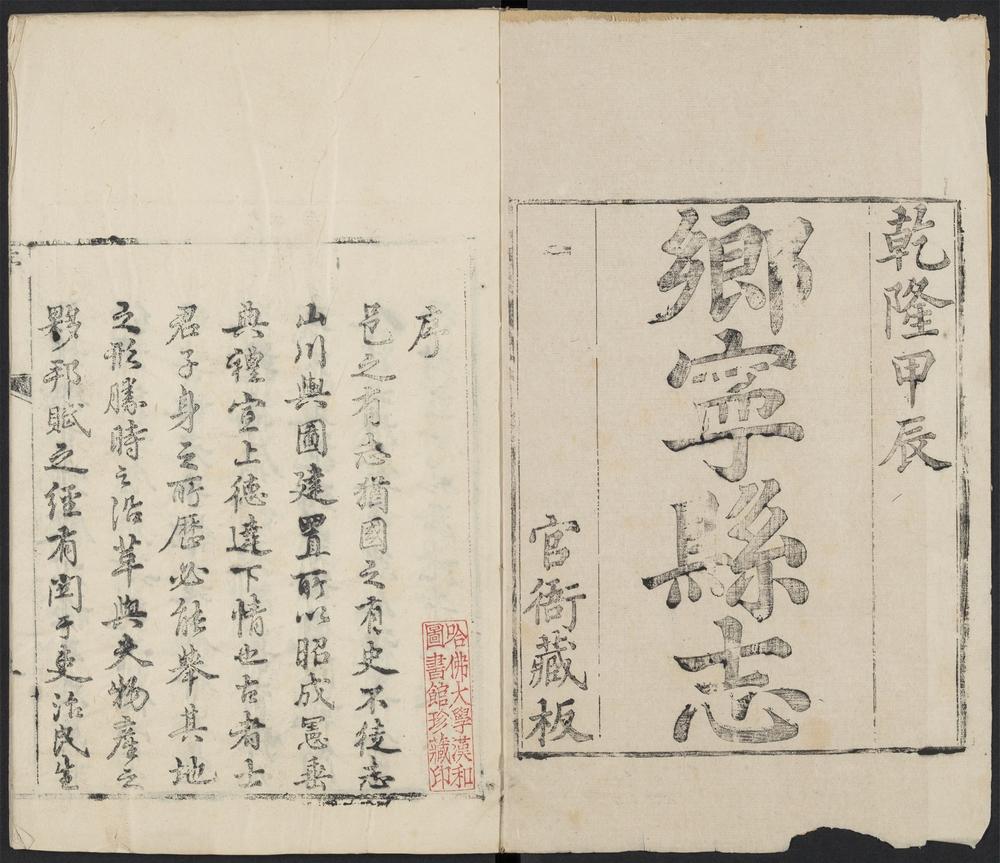 乾隆甲辰
鄉寧縣志
官衙藏板
序
邑之有志猶國之有史不徒志
山川輿圖建置所以昭成憲垂
典禮宣上德達下情也古者士
君子身之所歷必能舉其地
之形勝時之沿革與夫物產之
夥邦賦之經有関于吏治民生
哈佛大學漢和
圖書館珍藏印